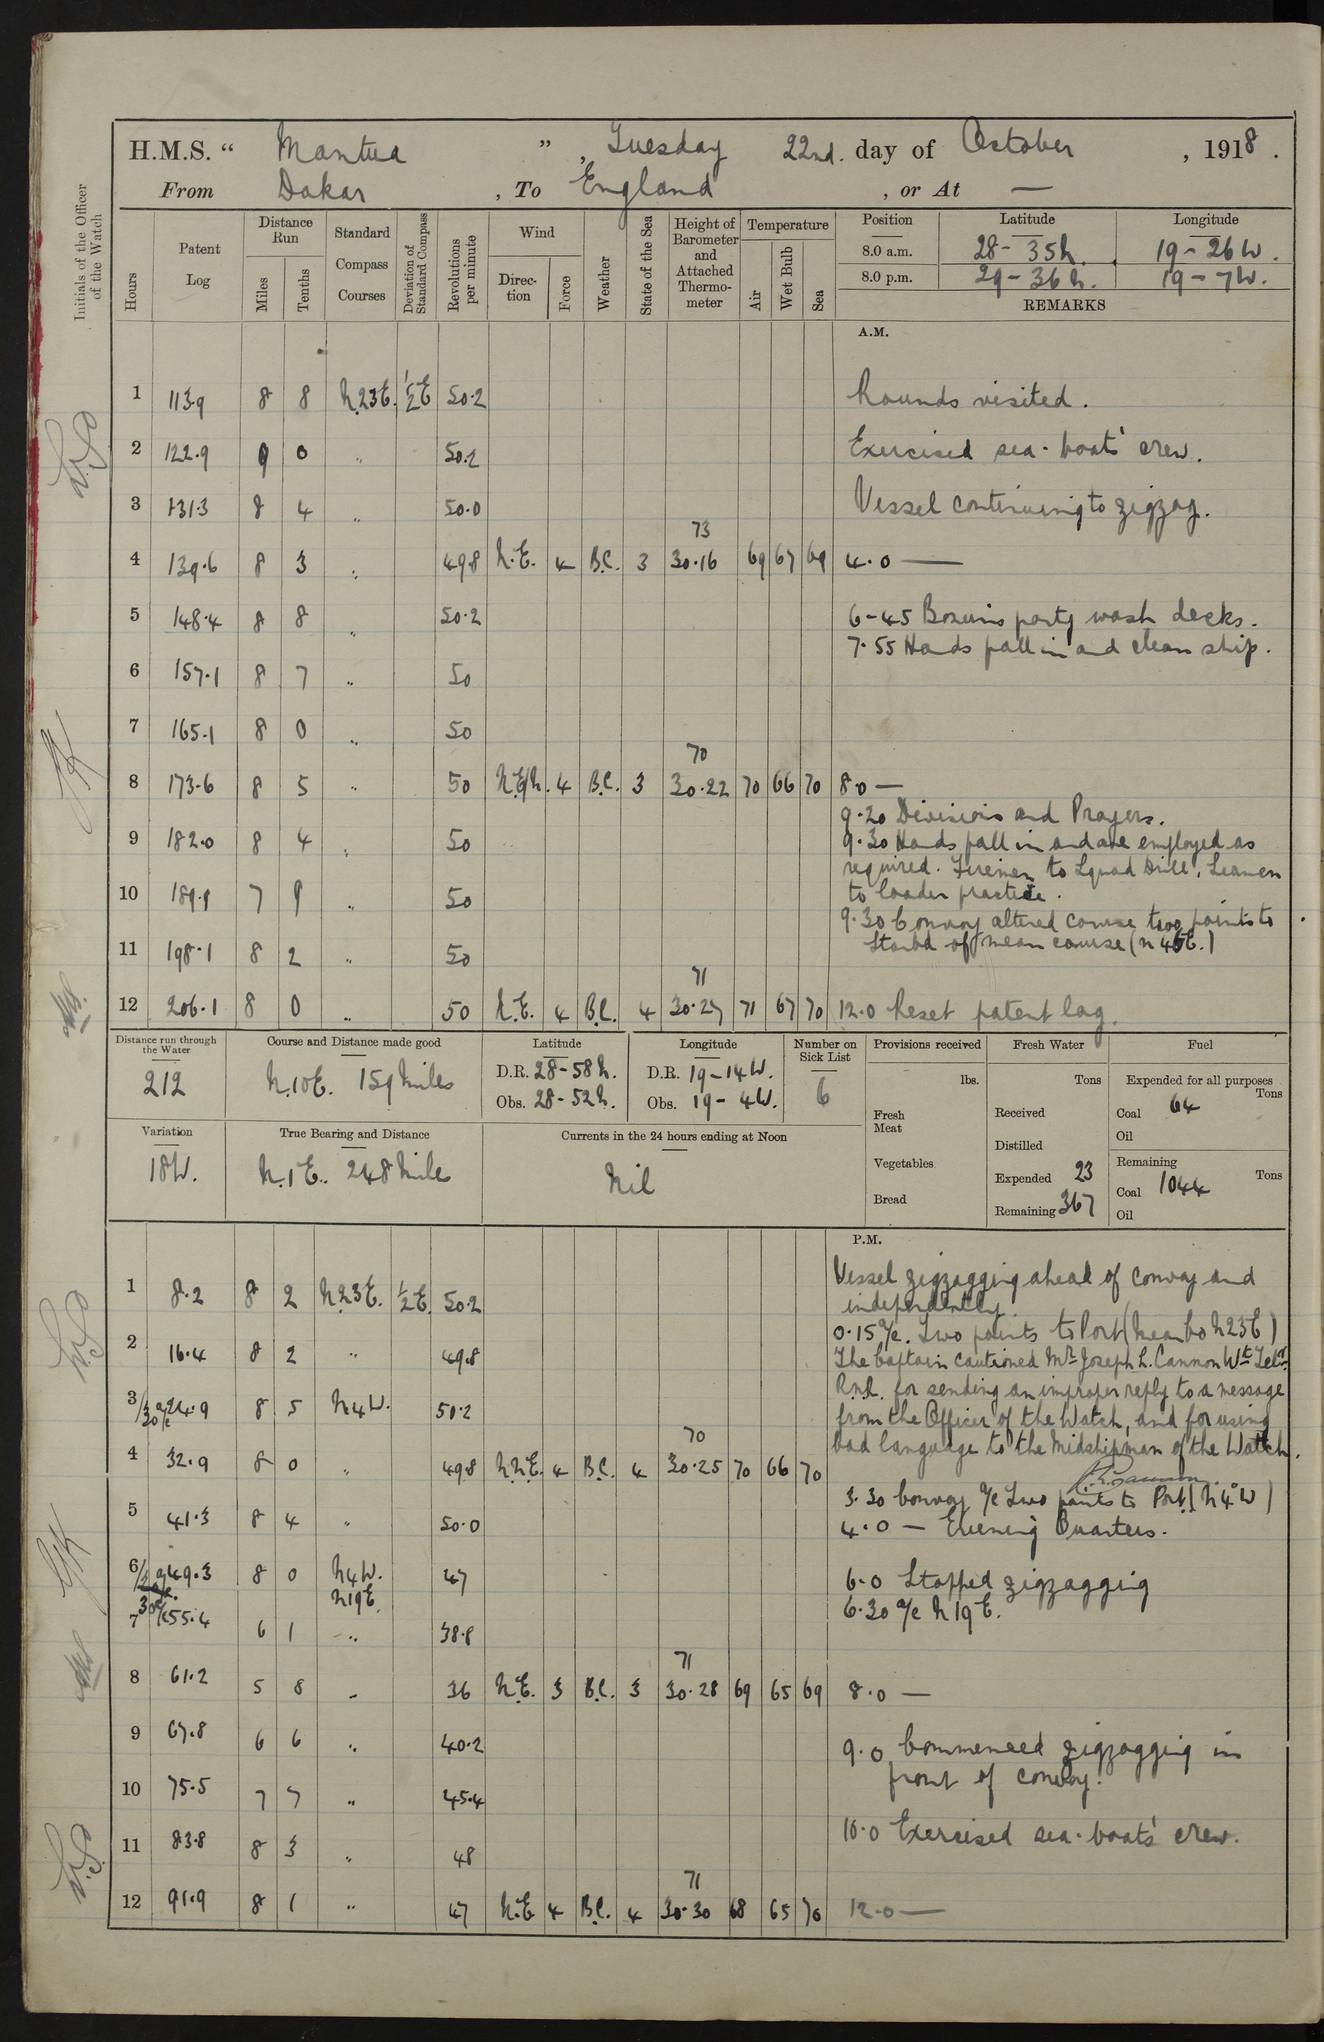 H.M.S. “ Mantua ” , Tuesday 22nd. day of October , 1918 .
From Dakar , To England , or At —
Initials of the Officer of the Watch
Hours
Patent Log
Distance Run
Miles
Tenths
Standard Compass Courses
Deviation of Standard Compass
Revolutions per minute
Wind
Direction
Force
Weather
State of the Sea
Height of Barometer and Attached Thermometer
Temperature
Air
Wet Bulb
Sea
Position Latitude Longitude
8.0 a.m. 28 - 35 N. 19 - 26 W.
8.0 p.m. 29 - 36 N. 19 - 7 W.
REMARKS
A.M.
1 113.9 8 8 N.23E. ½E 50.2 Rounds visited.
2 122.9 9 0 " 50.2 Exercised sea-boats' crew.
3 131.3 8 4 " 50.0 Vessel continuing to zigzag.
73
4 139.6 8 3 " 49.8 N.E. 4 B.C. 3 30.16 69 67 69 4.0 —
5 148.4 8 8 " 50.2 6-45 Bosuns party wash decks.
7.55 Hands fall in and clean ship.
6 157.1 8 7 " 50
7 165.1 8 0 " 50
70
8 173.6 8 5 " 50 N.E/N. 4 B.C. 3 30.22 70 66 70 8.0 —
9.20 Divisions and Prayers.
9 182.0 8 4 " 50 9.30 Hands fall in and are employed as
required. Firemen to Squad Drill, Seamen
10 189.9 7 9 " 50 to loader practice.
9.30 Convoy altered course two points to
11 198.1 8 2 " 50 Starbd of mean course (N 45E.)
71
12 206.1 8 0 " 50 N.E. 4 B.C. 4 30.27 71 67 70 12.0 Reset patent log.
Distance run through the Water
212
Course and Distance made good
N.10E. 159 Miles
Latitude
D.R. 28-58 N.
Obs. 28-52 N.
Longitude
D.R. 19-14 W.
Obs. 19- 4 W.
Number on Sick List
6
Provisions received
lbs.
Fresh Meat
Vegetables
Bread
Fresh Water
Tons
Received
Distilled
Expended 23
Remaining 367
Fuel
Expended for all purposes
Tons
Coal 64
Oil
Remaining
Tons
Coal 1044
Oil
Variation
18W.
True Bearing and Distance
N.1E. 248 Miles
Currents in the 24 hours ending at Noon
Nil
P.M.
1 8.2 8 2 N.23E. ½E. 50.2 Vessel zigzagging ahead of convoy and
independently.
0.15 a/c. Two points to Port (Mean Co N23E)
2 16.4 8 2 " 49.8 The Captain cautioned Mr Joseph L. Cannon Wt Telst
R.N.R. for sending an improper reply to a message
3 /30 a/c 24.9 8 5 N4W. 50.2 from the Officer of the Watch, and for using
70
4 32.9 8 0 " 49.8 N.N.E. 4 B.C. 4 30.25 70 66 70 bad language to the Midshipman of the Watch.
3.30 Convoy a/c Two points to Port (N 4° W)
5 41.3 8 4 " 50.0 4.0 — Evening Quarters.
6 49.3 8 0 N4W. 47 6.0 Stopped zigzagging
N19E. 6.30 a/c N19E.
7 /30 a/c 55.4 6 1 " 38.8
71
8 61.2 5 8 " 36 N.E. 3 B.C. 3 30.28 69 65 69 8.0 —
9 67.8 6 6 " 40.2 9.0 Commenced zigzagging in
front of convoy.
10 75.5 7 7 " 45.4
11 83.8 8 3 " 48 10.0 Exercised sea-boats' crew.
71
12 91.9 8 1 " 47 N.E 4 B.C. 4 30.30 68 65 70 12.0 —